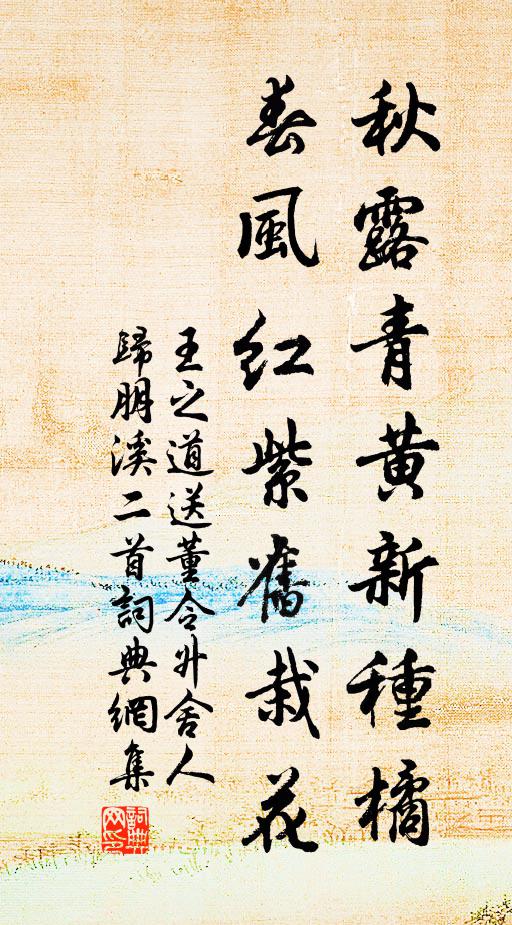 秋露青黄新種橘
春風红紫舊栽花
王之道送董令升舍人
歸朋溪二首詞典網集
詞典網印